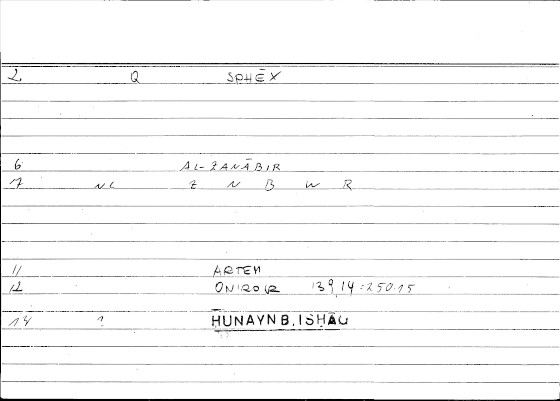 2 Q SPHĒX
6 AL-ZANĀBIR
7 NC Z N B W R
11 ARTEM
12 ONIROCR 139,14=250.15
14 ? HUNAYN B. ISHĀQ